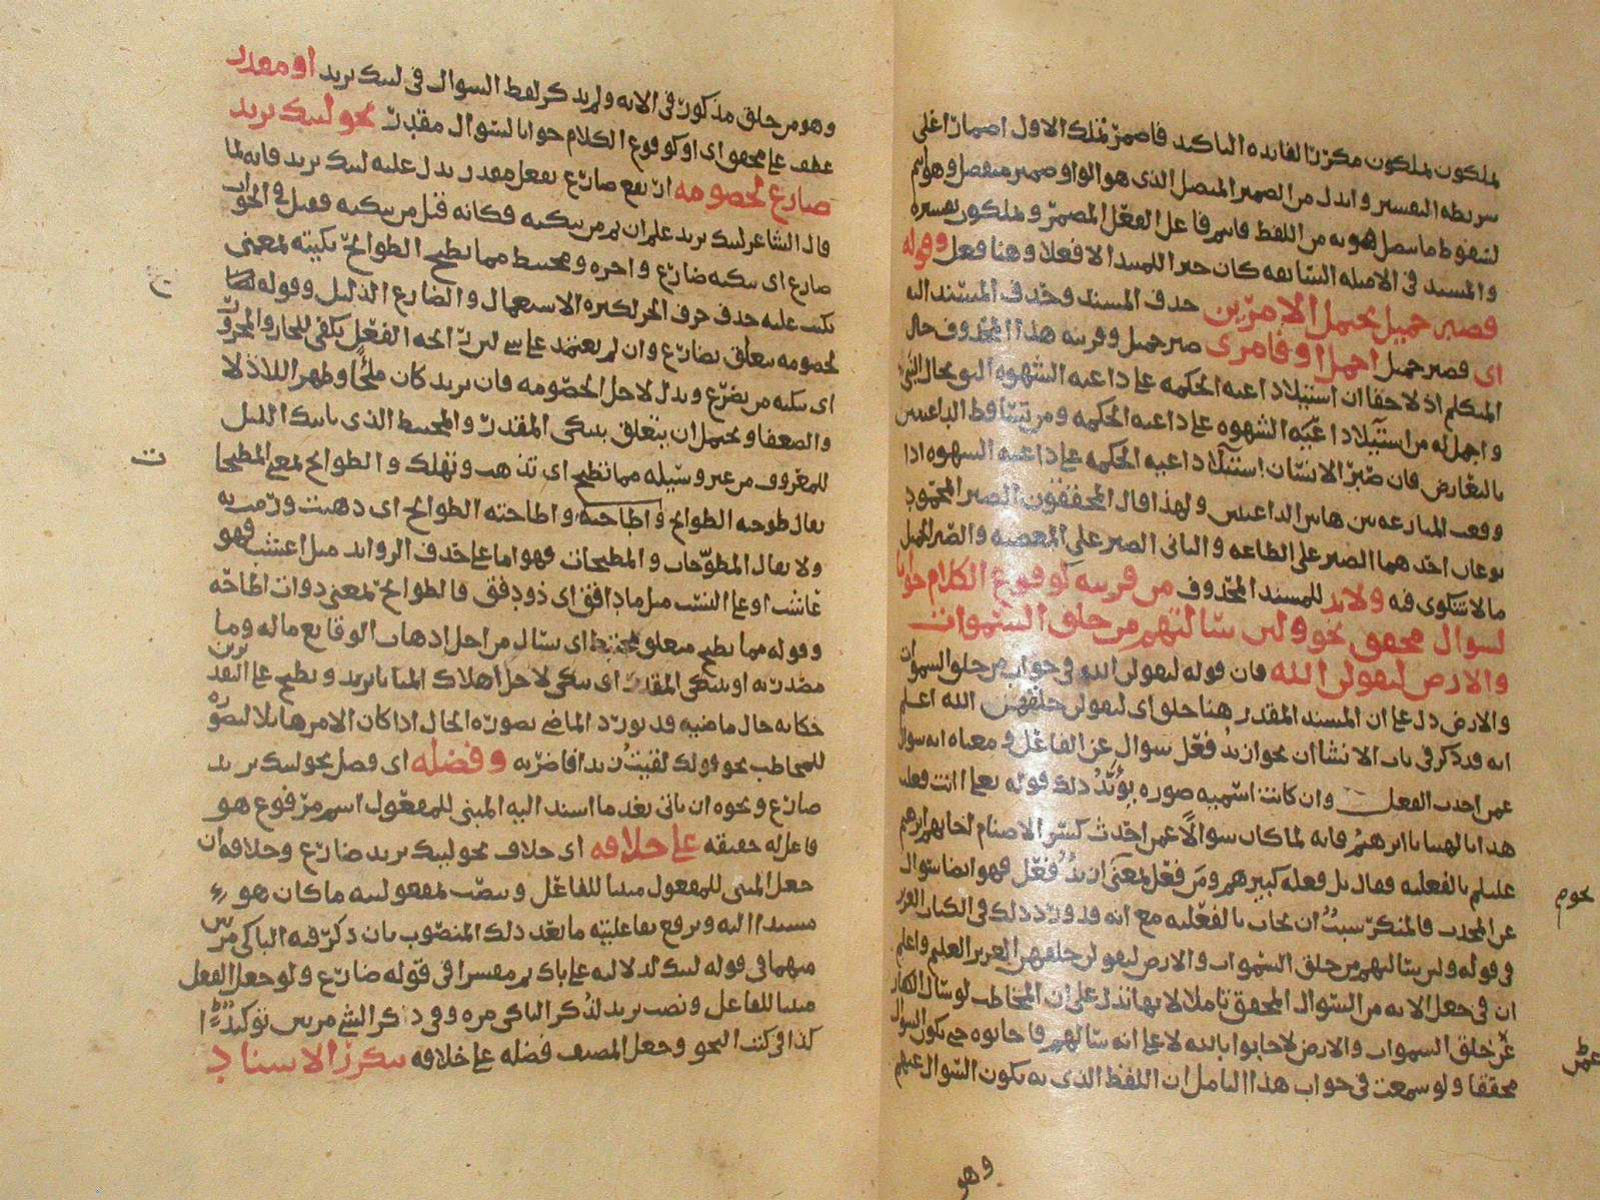 تملكون تملكون مكرر لفائدة التاكيد فاضمر تملك الاول اضمارا على
شريطة التفسير وابدل من الضمير المتصل الذي هو الواو ضمير منفصل وهو انتم
لسقوط ما يتصل هو به من اللفظ فانتم فاعل الفعل المضمر وتملكون تفسيره
والمسند في الامثلة السابقة كان خبر المسند الا فعلا وهنا فعل وقوله
فصبر جميل يحتمل الامرين حذف المسند وحذف المسند اليه
اي فصبر جميل اجمل او فامري صبر جميل وقرينة هذا المحذوف حال
المتكلم اذ لاحقا ان استيلاد داعية الحكمة على داعية الشهوة
واجمل له من استيلاد داعية الشهوة على داعية الحكمة ومن تساقط الداعيتين
بالتعارض فان صبر الانسان استيلاد داعية الحكمة على داعية الشهوة اذا
وقعت المنازعة بين هاتين الداعيتين ولهذا قال المحققون الصبر المحمود
نوعان احدهما الصبر على الطاعة والثاني الصبر على المعصية والصبر الجميل
ما لا شكوى فيه ولا بد للمسند المحذوف من قرينة كوقوع الكلام جوابا
لسوال محقق نحو ولئن سالتهم من خلق السموات
والارض ليقولن الله فان قوله ليقولن الله في جواب من خلق السموات
والارض دل على ان المسند المقدر هنا خلق اي ليقولن خلقهن الله اعلم
انه قد ذكر في باب الانشا ان نحو ازيد فعل سوال عن الفاعل ومعناه انه سوال
عمن احدث الفعل وان كانت اسمية صورة يؤيد ذلك قوله تعالى اانت فعلت
هذا بالهتنا يا ابرهيم فانه لما كان سوالا عمن احدث كسر الاصنام اجابهم ابرهيم
عليلم بالفعلية فقال بل فعله كبيرهم ومن فعل بمعنى ازيد فعل فهو ايضا سوال
عن المحدث فالمنكر سبب ان يجاب بالفعلية مع انه قد ورد ذلك في الكتاب العزيز
في قوله ولئن سالتهم من خلق السموات والارض ليقولن خلقهن العزيز العليم واعلم
ان في جعل الاية من السوال المحقق تاملا لانها تدل على ان المخاطب لو سال الكفار
عن خلق السموات والارض لاجابوا بالله لا على انه سالهم فاجابوه حتى يكون السوال
محققا ولو سمعت في جواب هذا التامل ان اللفظ الذي به يكون السوال عنهم
نحوم
وهو
وهو من خلق مذكور في الاية ولم يذكر لفظ السوال في ليبك يزيد او مقدر
عطف على محقق اي او كوقوع الكلام جوابا لسوال مقدر نحو ليبك يزيد
ضارع لخصومة ارتفع ضارع بفعل مقدر يدل عليه ليبك يزيد فانه لما
قال الشاعر ليبك يزيد علم ان ثم من يبكيه فكانه قيل من يبكيه فقيل في الجواب
ضارع اي يبكيه ضارع واخره ومختبط مما تطيح الطوائح بكيته بمعنى
بكيت عليه حذف حرف الجر لكثرة الاستعمال والضارع الذليل وقوله
لخصومة متعلق بضارع وان لم يعتمد على شي لان رائحة الفعل يكفي للجار والمجرور
اي يبكيه من يضرع ويذل لاجل الخصومة فان يزيد كان ملجأ وظهرا للاذلا
والضعفا ويحتمل ان يتعلق بيبكي المقدر والمختبط الذي ياتيك الليل
للمعروف من غير وسيلة مما تطيح اي تذهب وتهلك والطوائح بمعنى المطيحات
يقال طوحته الطوائح واطاحته واطاحته الطوائح اي ذهبت ورمت به
ولا يقال المطوحات والمطيحات فهو اما على حذف الزوايد مثل اعشب فهو
عاشب او على النسب مثل ما دافق اي ذو دفق فالطوائح بمعنى ذوات اطاحة
وقوله مما تطيح متعلق بمختبط اي سال من اجل اذهاب الوقايع ماله وما
مصدرية او بيبكي المقدر اي يبكي لاجل اهلاك المنايا يزيد وتطيح على التقديرين
حكاية حال ماضية قد يورد الماضي بصورة الحال اذا كان الامر هايلا لتصوره
للمخاطب نحو قولك لقيت زيدا فاضربه وفضله اي فضل نحو ليبك يزيد
ضارع ونحوه ان ياتي بعد ما اسند اليه المبني للمفعول اسم مرفوع هو
فاعل له حقيقة على خلافه اي خلاف نحو ليبك يزيد ضارع وخلافه ان
جعل المبني للمفعول مبنيا للفاعل وينصب بمفعوليته ما كان هو
مسندا اليه ويرفع بفاعليته ما بعد ذلك المنصوب بان ذكر فيه الباكي مرتين
مبهما في قوله ليبك لدلالته على باك ثم مفسرا في قوله ضارع ولو جعل الفعل
مبنيا للفاعل ونصب يزيد لذكر الباكي مرة وفي ذكر الشي مرتين توكيد
كذا في كتب النحو وجعل المصنف فضله على خلافه بتكرر الاسناد